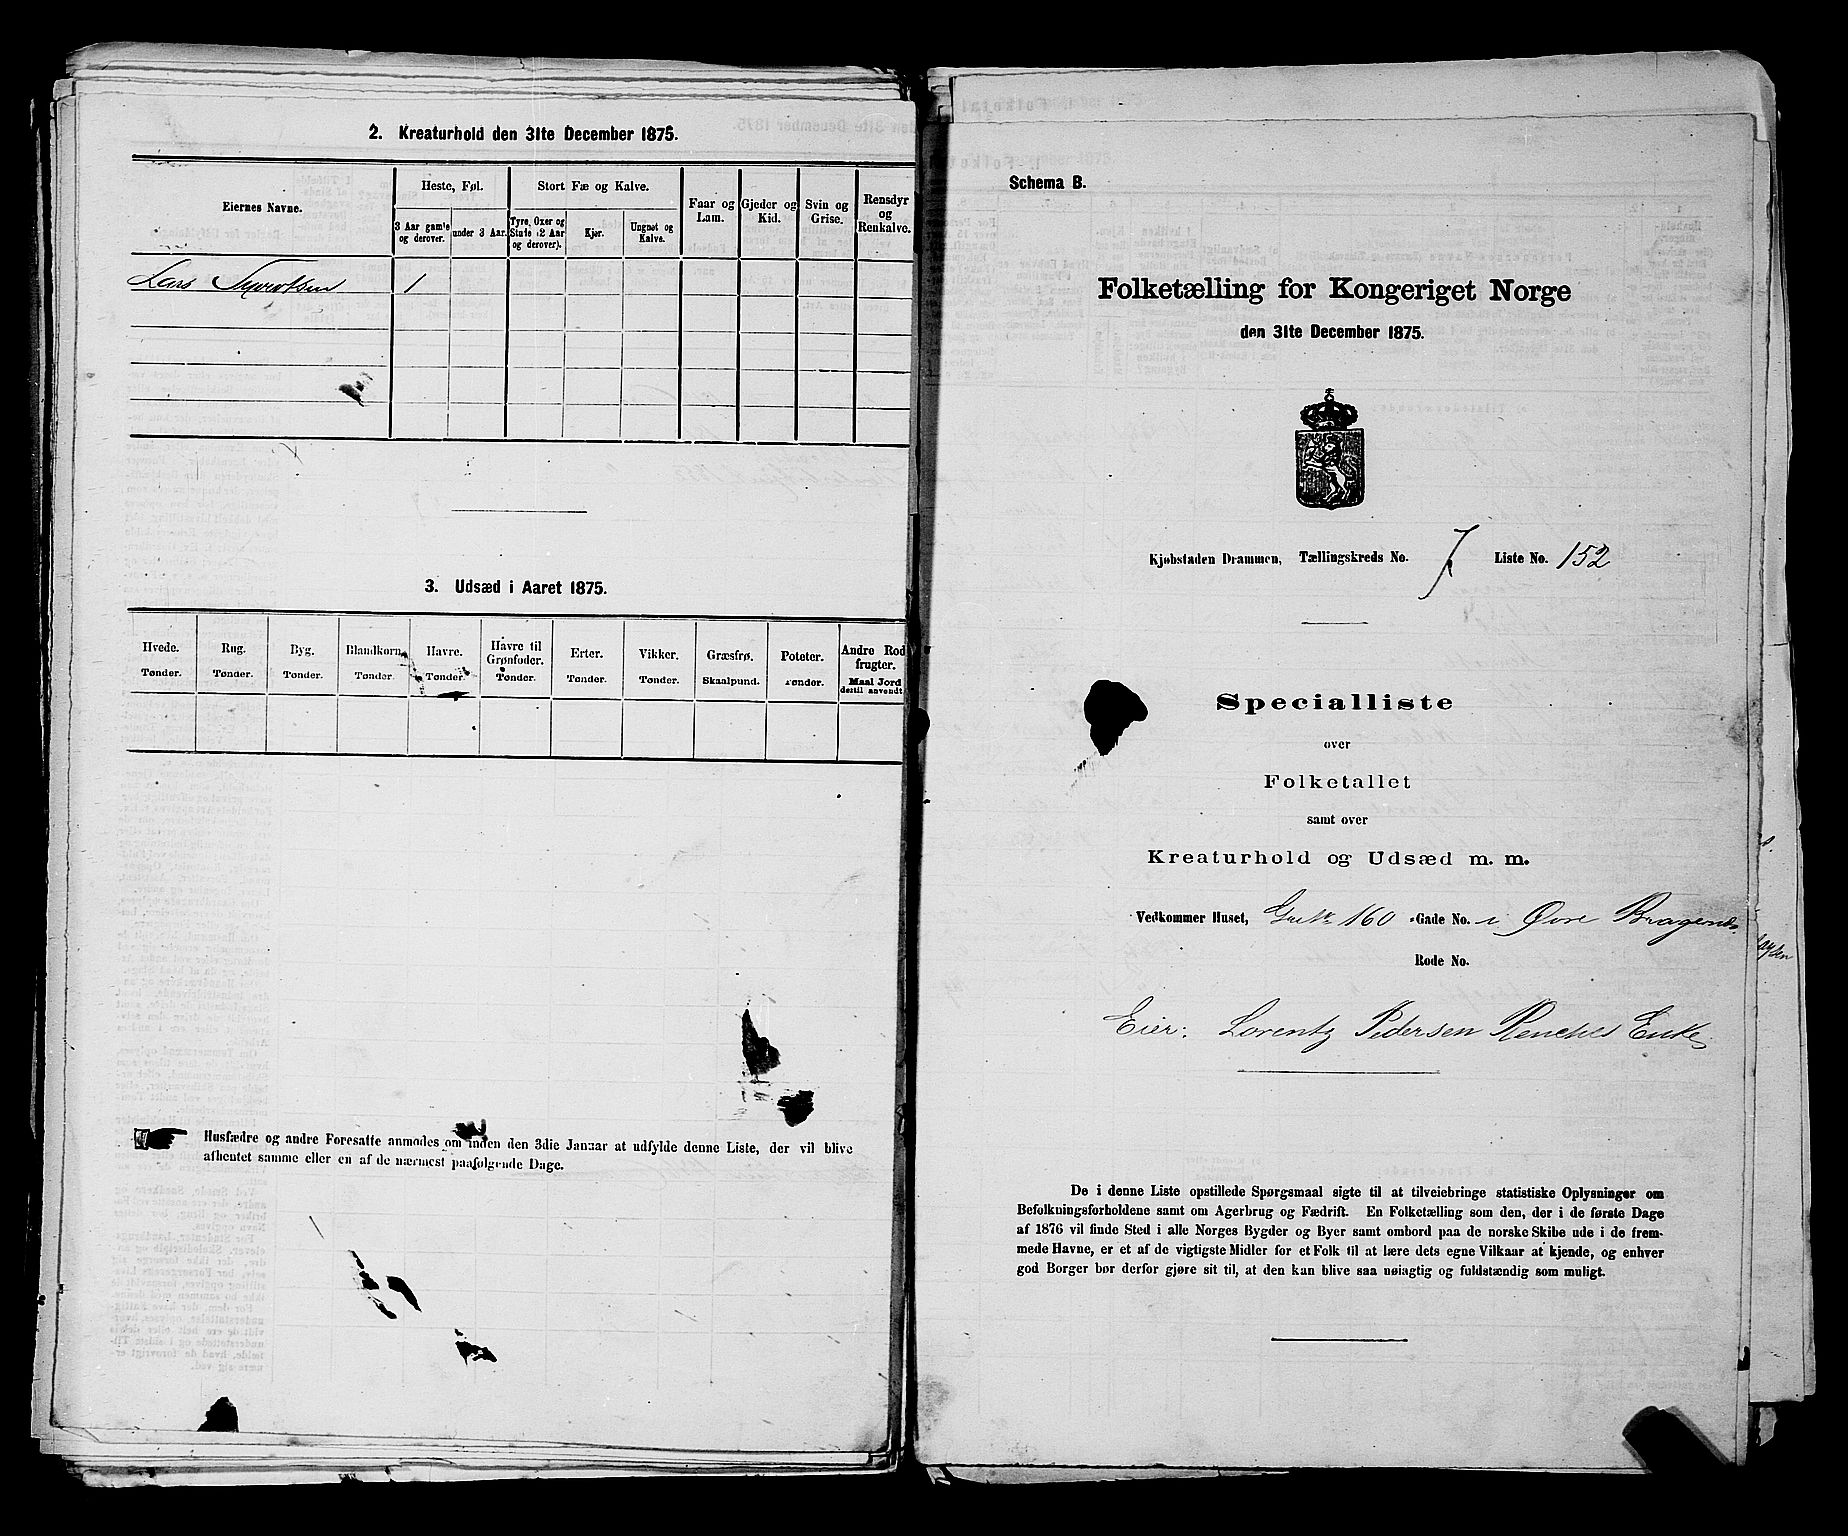 2. Kreaturhold den 31te December 1875.
Eiernes Navne.
Heste, Føl.
Stort Fæ og Kalve.
Faar og Lam.
Gjeder og Kid.
Svin og Grise.
Rensdyr og Renkalve.
3 Aar gamle og derover.
under 3 Aar.
Tyre, Oxer og Stute (2 Aar og derover).
Kjør.
Ungnøt og Kalve.
Lars 1
3. Udsæd i Aaret 1875.
Hvede. Rug. Byg. Blandkorn. Havre. Havre til Grønfoder. Erter. Vikker. Græsfrø. Poteter. Andre Rodfrugter.
Tønder. Tønder. Tønder. Tønder. Tønder. Tønder. Tønder. Tønder. Skaalpund. Tønder. Maal Jord dertil anvendt.
Husfædre og andre Foresatte anmodes om inden den 3die Januar at udfylde denne Liste, der vil blive
afhentet samme eller en af de nærmest paafølgende Dage.
Schema B.
Folketælling for Kongeriget Norge
den 31te December 1875.
Kjøbstaden Drammen, Tællingskreds No. 7. Liste No. 152
Specialliste
over
Folketallet
samt over
Kreaturhold og Udsæd m. m.
Vedkommer Huset, 160 Gade No. i Øvre Bragernes
Rode No.
Eier: Lorentz Pedersen Enke
De i denne Liste opstillede Spørgsmaal sigte til at tilveiebringe statistiske Oplysninger om
Befolkningsforholdene samt om Agerbrug og Fædrift. En Folketælling som den, der i de første Dage
af 1876 vil finde Sted i alle Norges Bygder og Byer samt ombord paa de norske Skibe ude i de frem-
mede Havne, er et af de vigtigste Midler for et Folk til at lære dets egne Vilkaar at kjende, og enhver
god Borger bør derfor gjøre sit til, at den kan blive saa nøiagtig og fuldstændig som muligt.